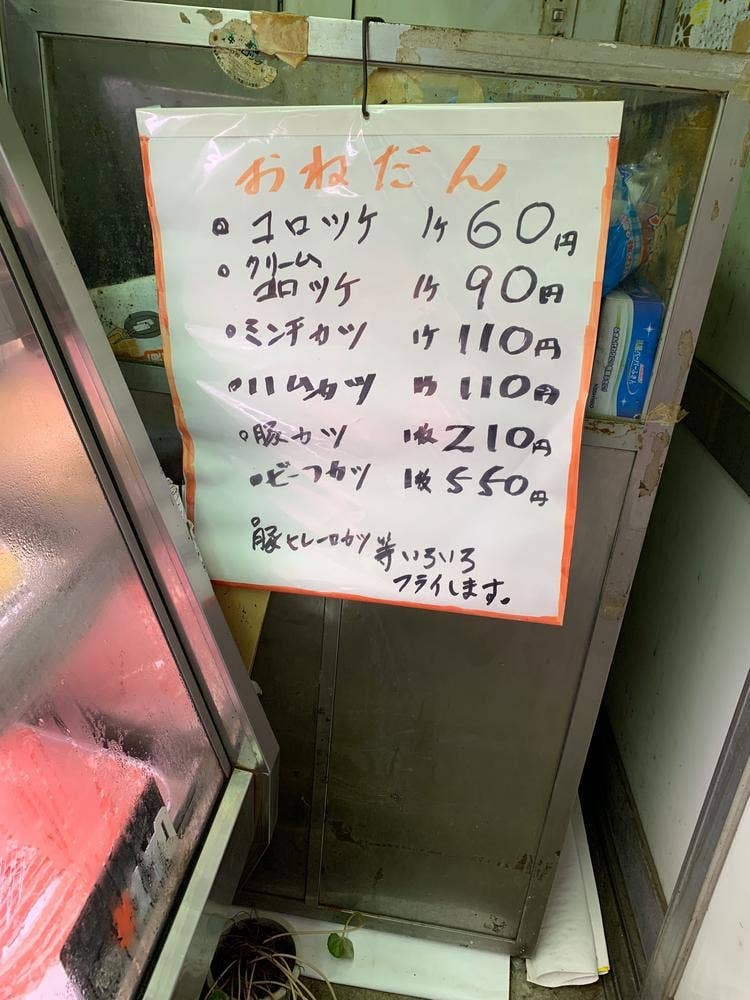 おねだん
コロッケ 1ケ 60円
クリーム
コロッケ 1ケ 90円
ミンチカツ 1ケ 110円
ハムカツ 110円
豚カツ 1枚 210円
ビーフカツ 1枚 550円
豚ヒレ一口カツ等いろいろ
フライします。